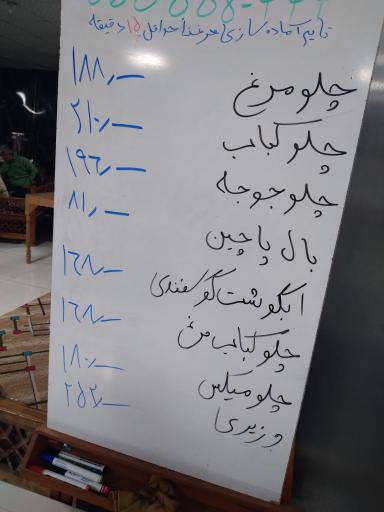 تایم آماده سازی هر غذا حداقل ۱۵ دقیقه
چلو مرغ ۱۸۸,—
چلو کباب ۲۱۰,—
چلو جوجه ۱۹۶,—
بال پاچین ۸۱,—
ابگوشت گوسفندی ۱۶۸,—
چلو کباب مرغ ۱۶۸,—
چلو میکس ۱۸۰,—
وزیری ۲۵۲,—